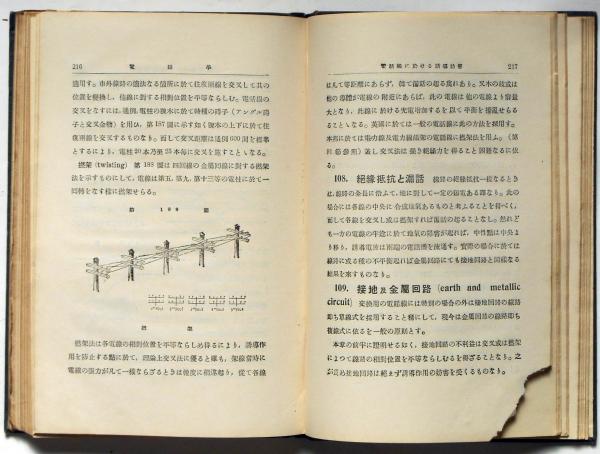 216
電話學
適用す。市外線路の適法なる箇所に於て往復兩線を交叉して其の
位置を變換し、他線に對する相對位置を平等ならしむ。電話線の
交叉をなすには、通例、電柱の腕木に於て特種の碍子(アングル碍
子と交叉金物)を用ひ、第187圖に示す如く腕木の上下に於て往
復兩線を交叉するものなり。而して交叉距離は通例600間を標準
とするにより、電柱20本乃至25本毎に交叉を施すことゝなる。
撚架(twisting) 第188圖は四回線の金屬回線に對する撚架
法を示すものにして、電線は第五、第九、第十三等の電柱に於て一
回轉をなす樣に撚架せらる。
第188圖
撚架
撚架法は各電線の相對位置を平等ならしめ得るにより、誘導作
用を防止する點に於て、理論上交叉法に優ると雖も、架線當時に
電線の張力が凡て一樣ならざるときは弛度に相違起り、從て各線
電話線に於ける誘導妨害
217
は凡て等距離にあらず、從て漏話の起る虞れあり。又木の枝或は
他の導體が電線の附近にあらば、此の電線は他の電線より容量
大となり、此線に於ける充電増加するを以て平衡を擾亂せらる
ることゝなる。英國に於ては一般の電話線に此の方法を採用す。
本邦に於ては電力線及電力線搭架の電話線に撚架法を用ふ。(第
蓋し交叉法は强き絕緣力を得ること困難なるに依
る。
108. 絕緣抵抗と漏話 線路の絕緣抵抗一樣なるとき
は、線路の全長に沿ふて、地に對して一定の漏電ある譯なり。此の
場合には各線の中央に合成地氣あるものと考ふることを得べく、
而して各線を交叉し或は撚架すれば漏話の起ることなし。然れど
も一方の電線の半途に於て地氣の障害が起れば、中性點は中央よ
り移り、誘導電流は兩端の電話機を流通す。實際の場合に於ては
線路に或る種の不平衡起れば金屬回路にても接地回路と同樣なる
結果を來すものなり。
109. 接地及金屬回路(earth and metallic
circuit) 交換用の電話線には特別の場合の外は接地回路の線路
卽ち單線式を採用すること稀にして、現今は金屬回路の線路卽ち
複線式に依るを一般の原則とす。
本章の前半に證明せる如く、接地回路の不利益は交叉或は撚架
によつて線路の相對位置を平等ならしむるを得ざることなり。之
が爲め接地回路は絕えず誘導作用の妨害を受くるものなり。